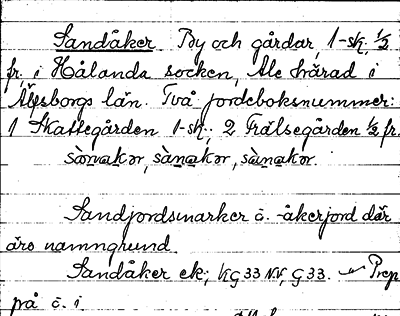 Sandåker. By och gårdar, 1-sk, 1/2
fr, i Hålanda socken, Ale härad i
Älfsborgs län. Två jordeboksnummer:
1 Skattegården 1-sk.; 2 Frälsegården 1/2 fr.
sànakər, sànakər, sànakər.
Sandjordsmarker o. -åkerjord där
äro namngrund.
Sandåker ek; KG 33 NV, G 33. Prep
på o. i